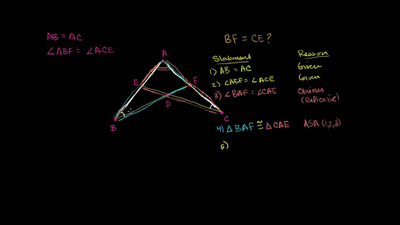 AB = AC
∠ABF = ∠ACE
BF = CE?
Statement Reason
1) AB = AC Given
2) ∠ABF = ∠ACE Given
3) ∠BAF = ∠CAE Obvious
(Reflexive)
4) △BAF ≅ △CAE ASA (1,2,3)
5)
A
E
F
D
B
C